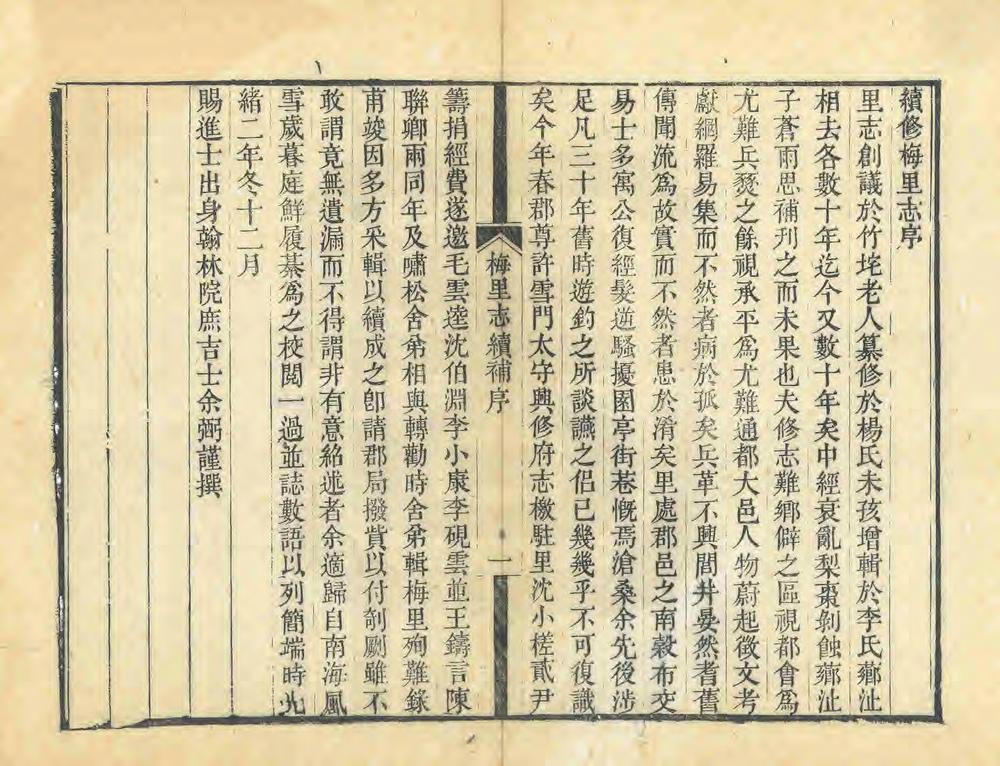 續修梅里志序
里志創議於竹垞老人纂修於楊氏未孩增輯於李氏薌沚
相去各數十年迄今又數十年矣中經衰亂梨棗剝蝕薌沚
子蒼雨思補刊之而未果也夫修志難鄉僻之區視都會爲
尤難兵燹之餘視承平爲尤難通都大邑人物蔚起徵文考
獻網羅易集而不然者病於孤矣兵革不興閭井晏然者舊
傳聞流爲故實而不然者患於淆矣里處郡邑之南穀布交
易士多寓公復經髮逆騷擾園亭街巷慨焉滄桑余先後涉
足凡三十年舊時遊釣之所談讌之侶已幾幾乎不可復識
矣今年春郡尊許雪門太守興修府志檄駐里沈小槎貳尹
梅里志續補序
一
籌捐經費遂邀毛雲逵沈伯淵李小康李硯雲並王鑄言陳
聯卿兩同年及嘯松舍弟相與轉勸時舍弟輯梅里殉難錄
甫竣因多方采輯以續成之卽請郡局撥貲以付剞劂雖不
敢謂竟無遺漏而不得謂非有意紹述者余適歸自南海風
雪歲暮庭鮮履綦爲之校閱一過並誌數語以列簡端時光
緒二年冬十二月
賜進士出身翰林院庶吉士余弼謹撰